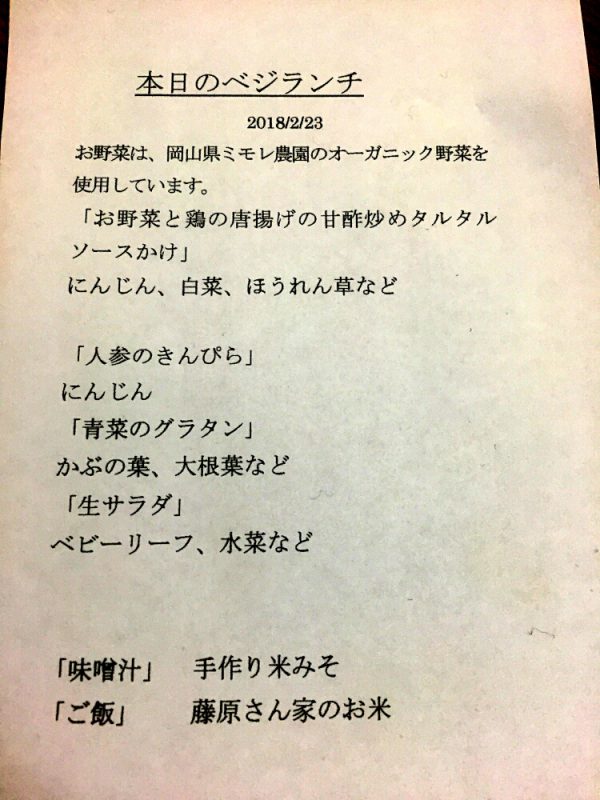 本日のベジランチ
2018/2/23
お野菜は、岡山県ミモレ農園のオーガニック野菜を
使用しています。
「お野菜と鶏の唐揚げの甘酢炒めタルタル
ソースかけ」
にんじん、白菜、ほうれん草など
「人参のきんぴら」
にんじん
「青菜のグラタン」
かぶの葉、大根葉など
「生サラダ」
ベビーリーフ、水菜など
「味噌汁」　手作り米みそ
「ご飯」　藤原さん家のお米